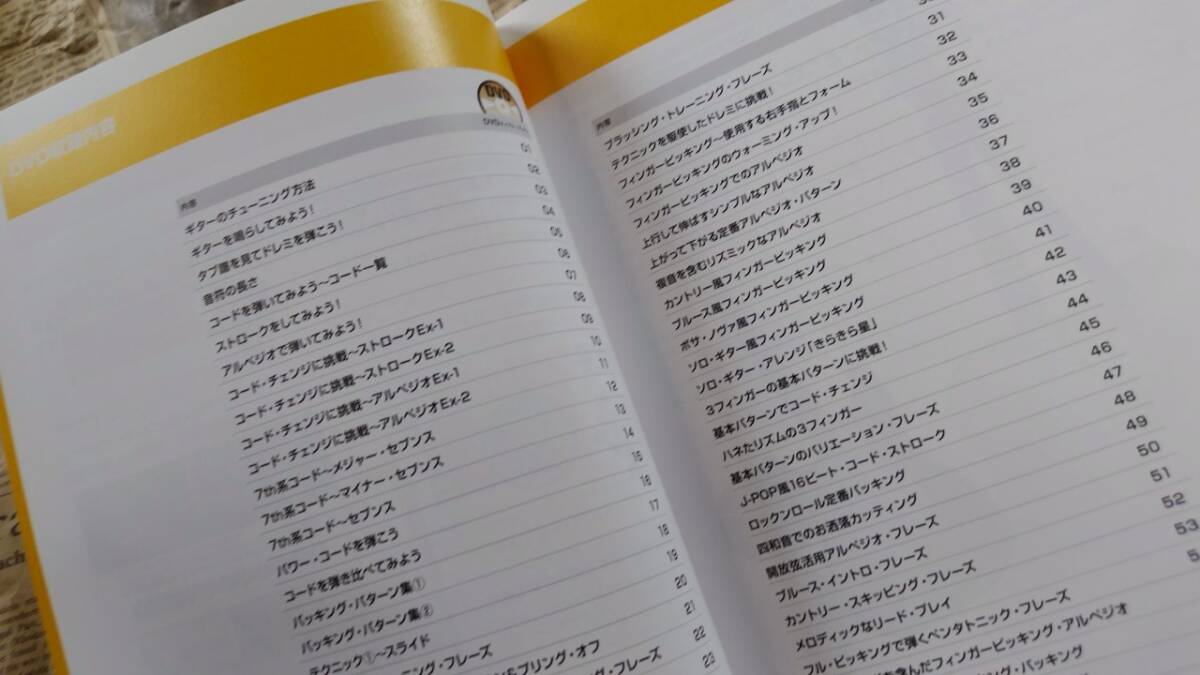 DVD収録内容
DVD
内容
ギターのチューニング方法
01
ギターを鳴らしてみよう!
02
タブ譜を見てドレミを弾こう!
03
音符の長さ
04
コードを弾いてみよう〜コード一覧
05
ストロークをしてみよう!
06
アルペジオで弾いてみよう!
07
コード・チェンジに挑戦〜ストロークEx-1
08
コード・チェンジに挑戦〜ストロークEx-2
09
コード・チェンジに挑戦〜アルペジオEx-1
10
コード・チェンジに挑戦〜アルペジオEx-2
11
7th系コード〜メジャー・セブンス
12
7th系コード〜マイナー・セブンス
13
7th系コード〜セブンス
14
パワー・コードを弾こう
15
コードを弾き比べてみよう
16
バッキング・パターン集①
17
バッキング・パターン集②
18
テクニック①〜スライド
19
20
ニング・フレーズ
21
プリング・オフ
22
ング・フレーズ
23
内容
ブラッシング・トレーニング・フレーズ
31
テクニックを駆使したドレミに挑戦!
32
フィンガーピッキング〜使用する右手指とフォーム
33
フィンガーピッキングのウォーミング・アップ!
34
フィンガーピッキングでのアルペジオ
35
上行して伸ばすシンプルなアルペジオ
36
上がって下がる定番アルペジオ・パターン
37
複音を含むリズミックなアルペジオ
38
カントリー風フィンガーピッキング
39
ブルース風フィンガーピッキング
40
ボサ・ノヴァ風フィンガーピッキング
41
ソロ・ギター風フィンガーピッキング
42
ソロ・ギター・アレンジ「きらきら星」
43
3フィンガーの基本パターンに挑戦!
44
基本パターンでコード・チェンジ
45
ハネたリズムの3フィンガー
46
基本パターンのバリエーション・フレーズ
47
J-POP風16ビート・コード・ストローク
48
ロックンロール定番バッキング
49
四和音でのお洒落カッティング
50
開放弦活用アルペジオ・フレーズ
51
ブルース・イントロ・フレーズ
52
カントリー・スキッピング・フレーズ
53
メロディックなリード・プレイ
フル・ピッキングで弾くペンタトニック・フレーズ
を含んだフィンガーピッキング・アルペジオ
ング・バッキング